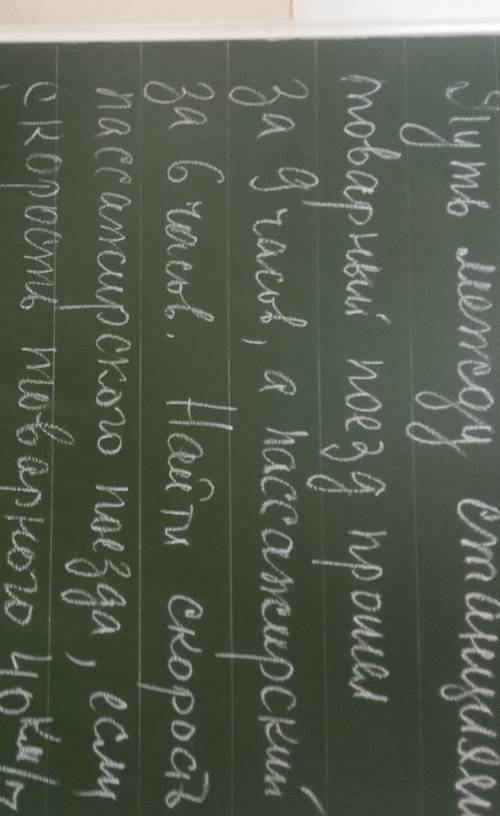 Путь между станциям
товарный поезд прошел
за 9 часов, а пассажирский
за 6 часов. Найти скорость
пассажирского поезда, если
скорость товарного 40 км/ч